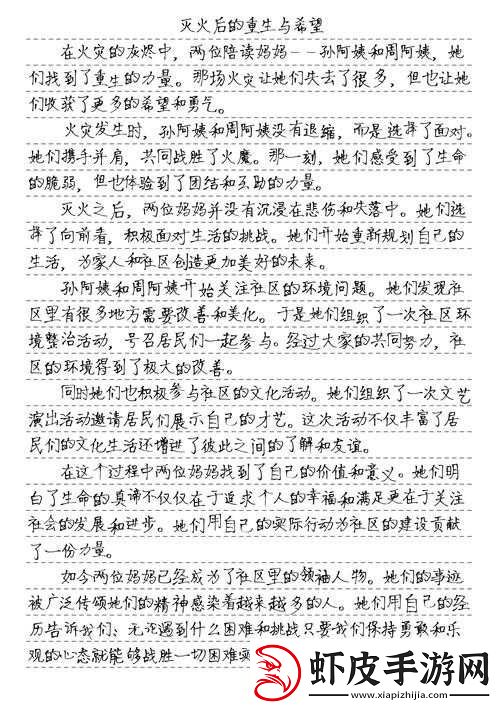 灭火后的重生与希望
在火灾的灰烬中，两位陪读妈妈——孙阿姨和周阿姨，她
们找到了重生的力量。那场火灾让她们失去了很多，但也让她
们收获了更多的希望和勇气。
火灾发生时，孙阿姨和周阿姨没有退缩，而是选择了面对。
她们携手并肩，共同战胜了火魔。那一刻，她们感受到了生命
的脆弱，但也体验到了团结和互助的力量。
灭火之后，两位妈妈并没有沉浸在悲伤和失落中。她们选
择了向前看，积极面对生活的挑战。她们开始重新规划自己的
生活，为家人和社区创造更加美好的未来。
孙阿姨和周阿姨开始关注社区的环境问题。她们发现社
区里有很多地方需要改善和美化。于是她们组织了一次社区环
境整治活动，号召居民们一起参与。经过大家的共同努力，社
区的环境得到了极大的改善。
同时她们也积极参与社区的文化活动。她们组织了一次文艺
演出活动邀请居民们展示自己的才艺。这次活动不仅丰富了居
民们的文化生活还增进了彼此之间的了解和友谊。
在这个过程中两位妈妈找到了自己的价值和意义。她们明
白了生命的真谛不仅仅在于追求个人的幸福和满足更在于关注
社会的发展和进步。她们用自己的实际行动为社区的建设贡献
了一份力量。
如今两位妈妈已经成为了社区里的领袖人物。她们的事迹
被广泛传颂她们的精神感染着越来越多的人。她们用自己的经
历告诉我们：无论遇到什么困难和挑战只要我们保持勇敢和乐
观的心态就能够战胜一切困难实
虾皮手游网
www.xiapizhijia.com